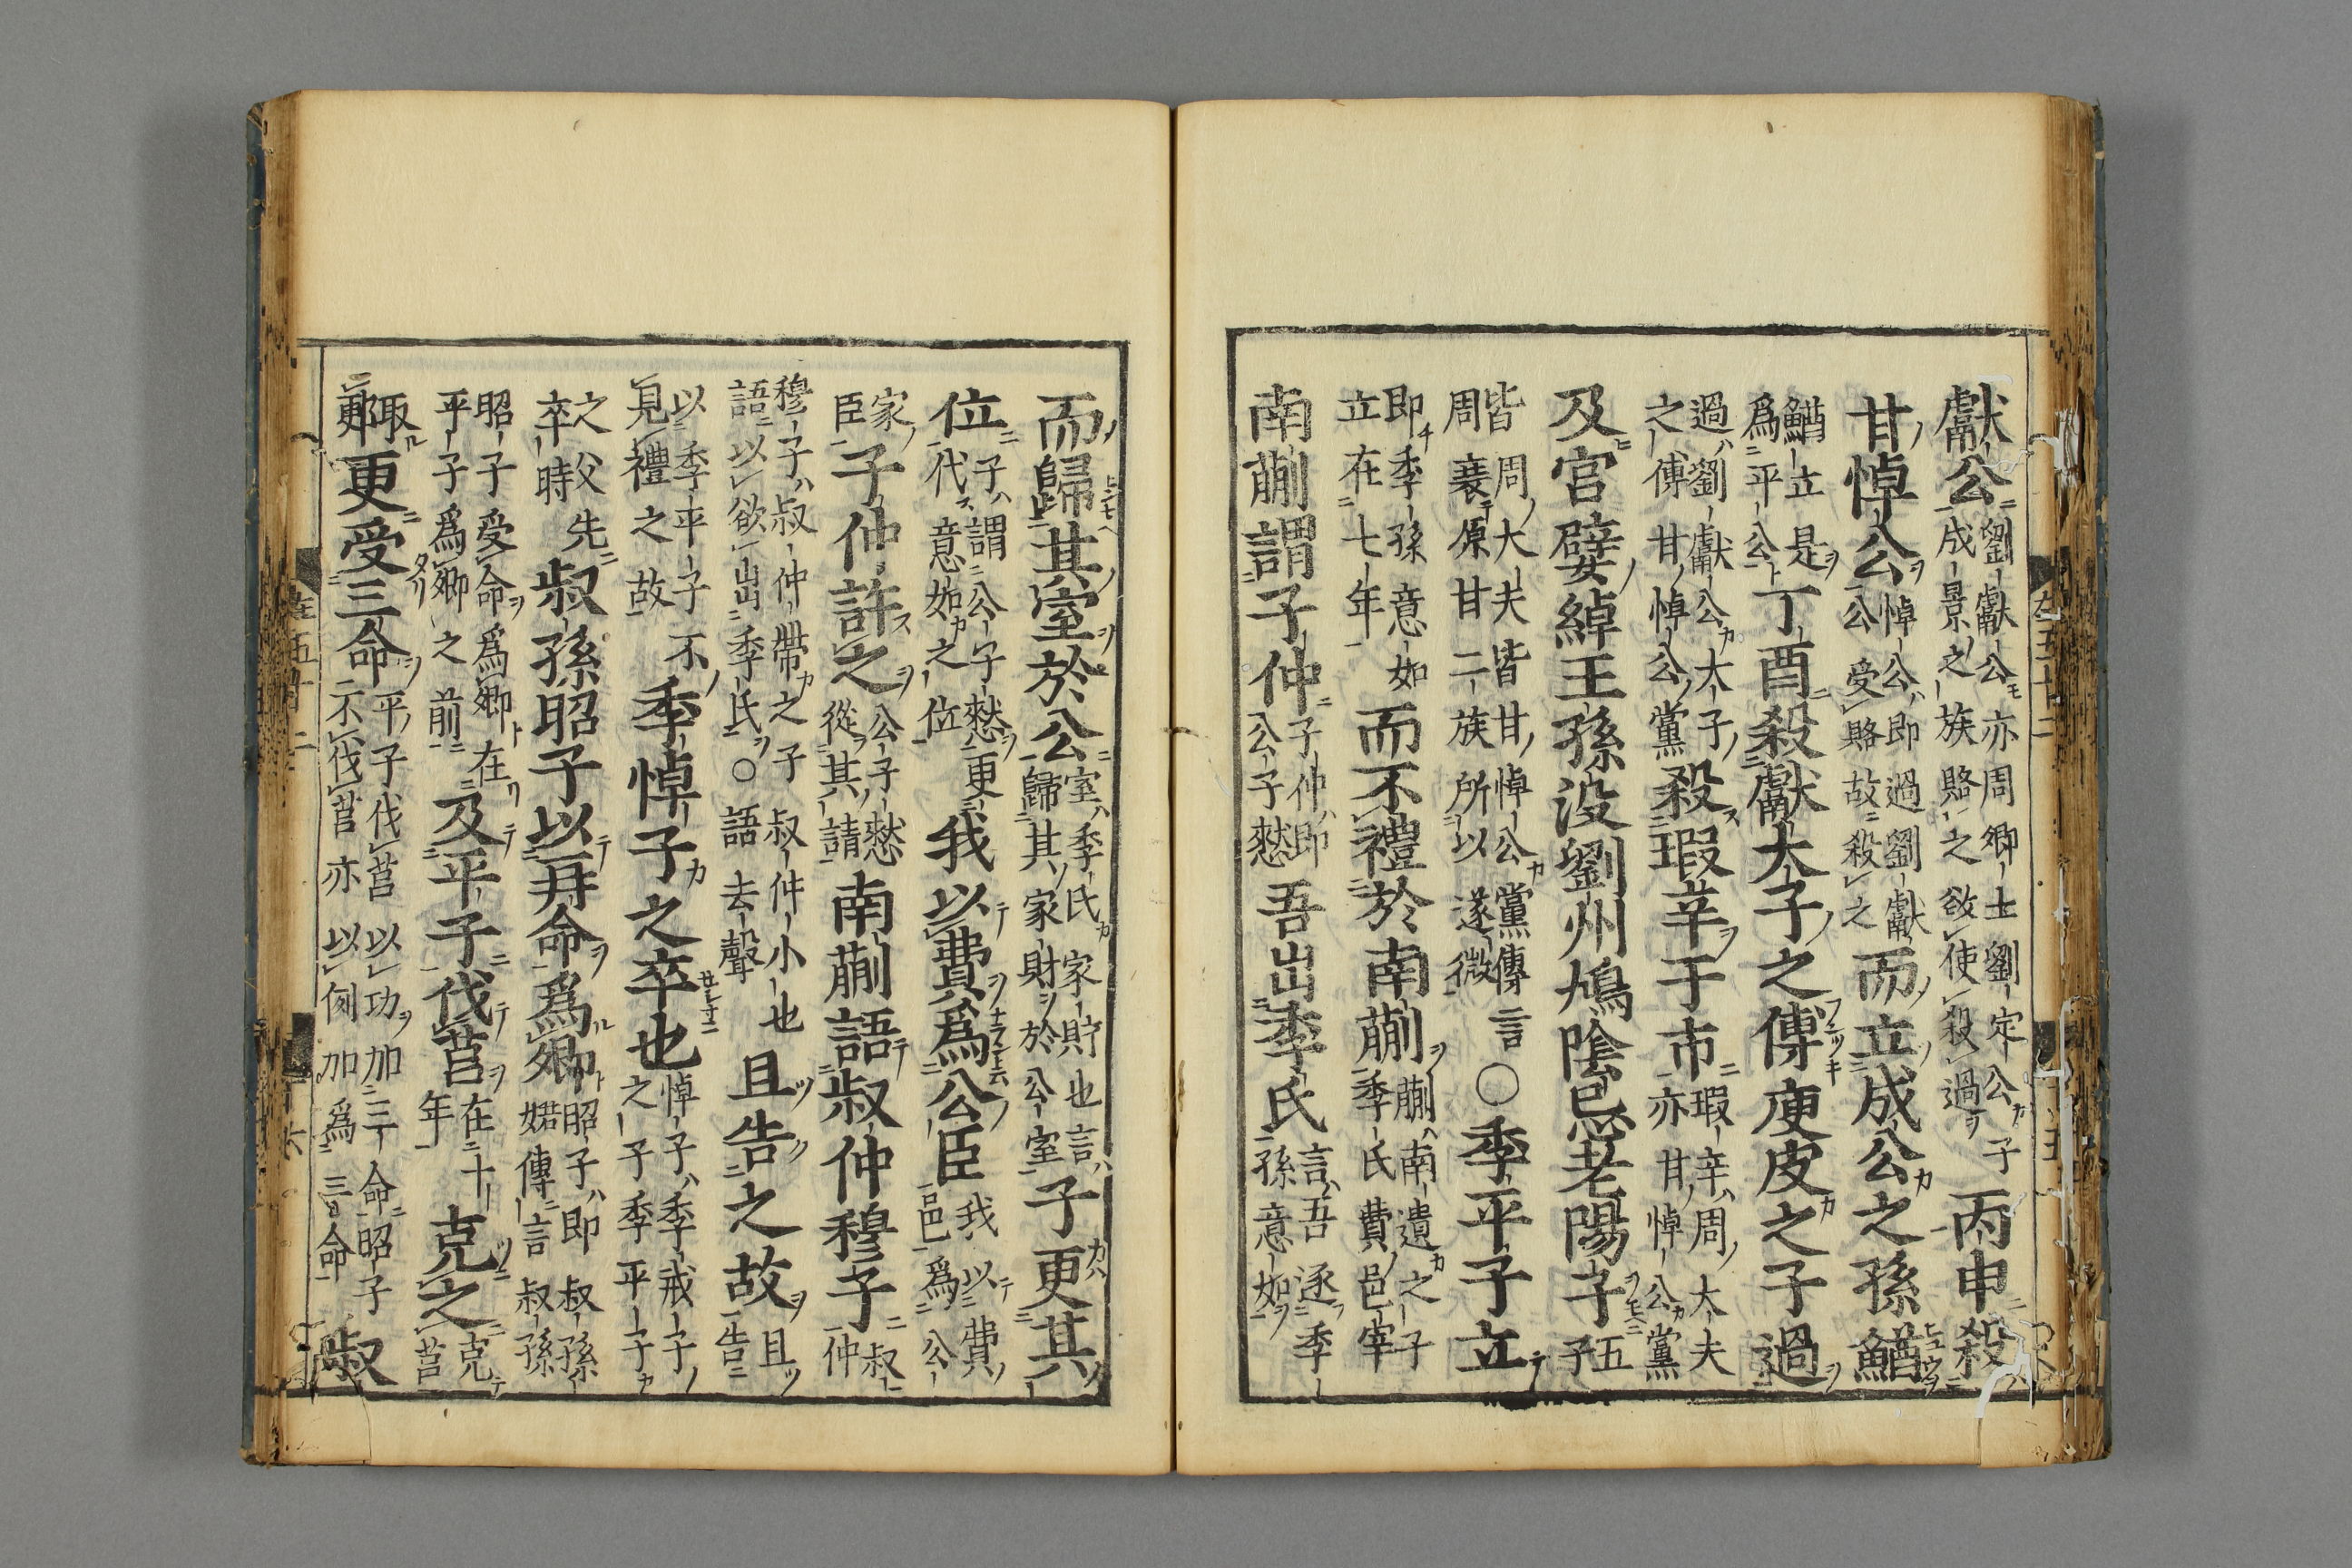 獻公劉獻公亦周卿士劉定公子成景之族賂之欲使殺過丙申殺
甘悼公悼公即過劉獻公受賂故殺之而立成公之孫鰌
鰌立是爲平公丁酉殺獻太子之傅庾皮之子過
過劉獻公太子之傅甘悼公黨殺瑕辛于市瑕辛周大夫亦甘悼公黨
及宮嬖綽王孫没劉州鳩陰忌老陽子五子
皆周大夫皆甘悼公黨傳言周衰原甘二族所以遂微○季平子立
即季孫意如立在七年而不禮於南蒯蒯南遺之子季氏費邑宰
南蒯謂子仲子仲即公子憖吾出季氏言吾逐季孫意如
而歸其室於公室季氏家貯也言歸其家財於公室子更其
位子謂公子憖更代意如之位我以費爲公臣我以費邑爲公
家臣子仲許之公子憖從其請南蒯語叔仲穆子叔仲
穆子叔仲帶之子叔仲小也語以欲出季氏○語去聲且告之故且告
以季平子不見禮之故季悼子之卒也悼子季戒子之子季平子
之父先卒時叔孫昭子以再命爲卿昭子即叔孫婼傳言叔孫
昭子受命爲卿在平子爲卿之前及平子伐莒在十年克之克莒
取鄆更受三命平子伐莒以功加三命昭子不伐莒亦以例加爲三命叔